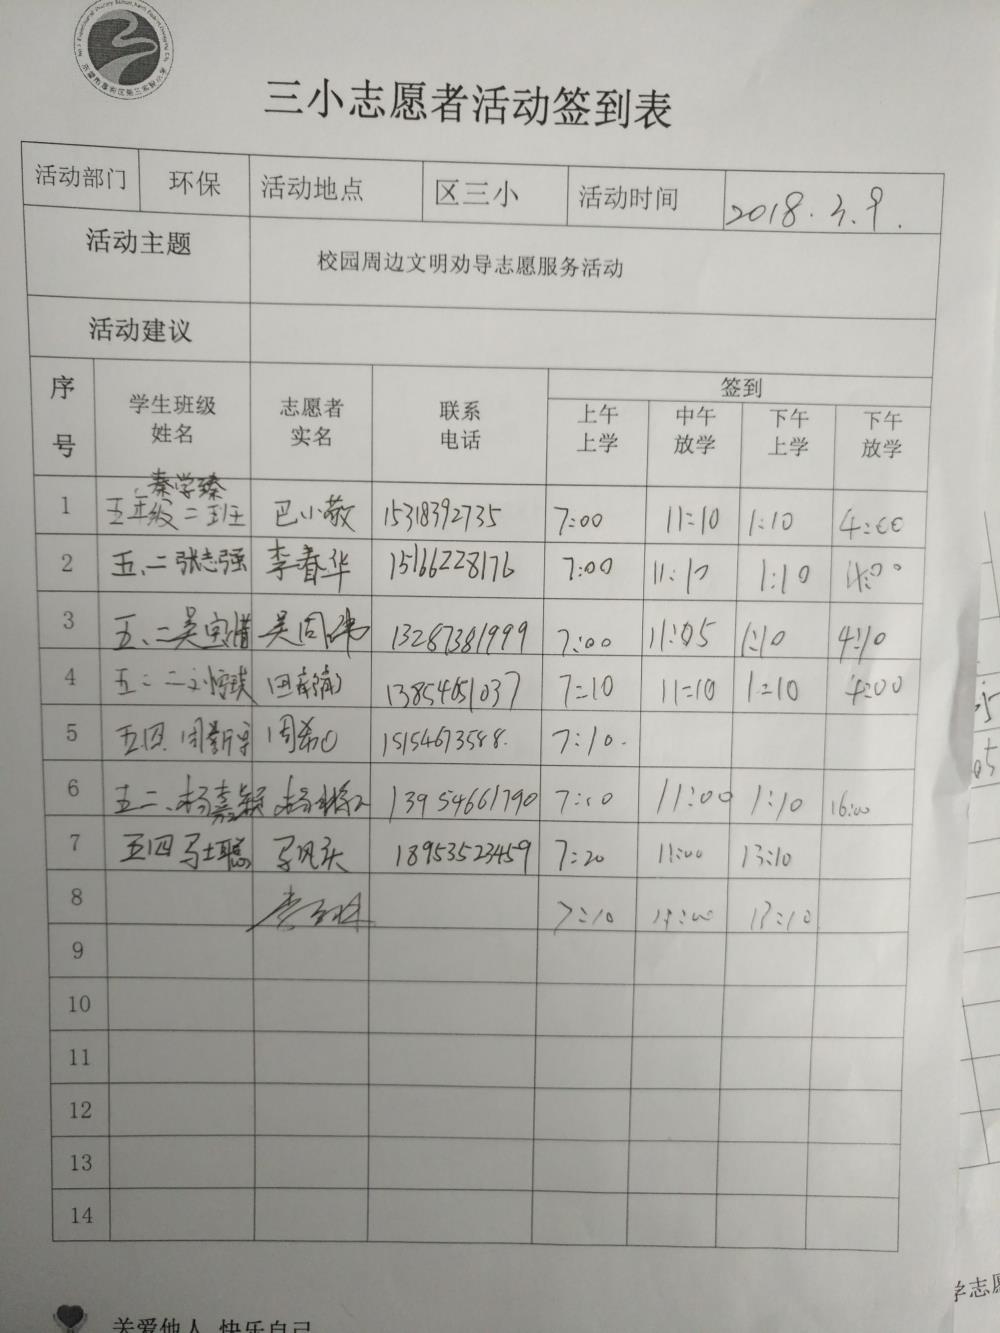 三小志愿者活动签到表
活动部门 环保 活动地点 区三小 活动时间 2018.3.9.
活动主题 校园周边文明劝导志愿服务活动
活动建议
序号 学生班级姓名 志愿者实名 联系电话 签到
上午上学 中午放学 下午上学 下午放学
秦学臻
1 五年级二班 巴小敬 15318392735 7:00 11:10 1:10 4:00
2 五.二张志强 李春华 15166228176 7:00 11:10 1:10 4:00
3 五.二吴 吴 13287381999 7:00 11:05 1:10 4:10
4 五二 13854051037 7=10 11=10 1=10 4=00
5 五四 周 15154673588. 7:10.
6 五二.杨嘉颖 杨 13954661790 7:10 11:00 1:10 16:00
7 五四马士聪 18953523459 7:20 11:00 13:10
8 7:10 13:10
9
10
11
12
13
14
关爱他人 快乐自己
学志愿